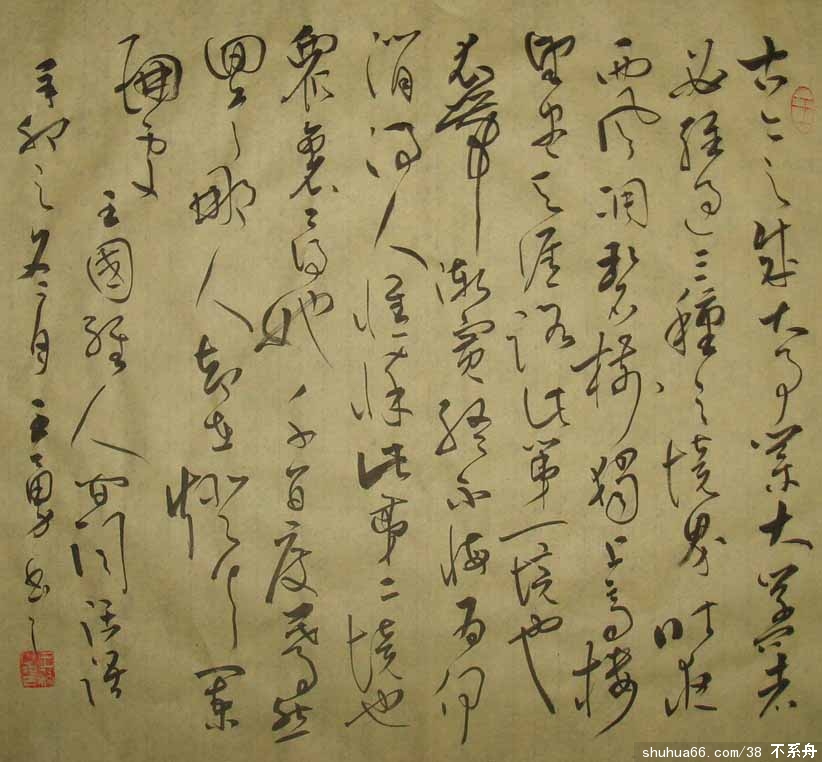 古今之成大事業大學問者
必經過三種之境界昨夜
西風凋碧樹獨上高樓
望盡天涯路此第一境也
衣帶漸寬終不悔為伊
消得人憔悴此第二境也
眾裏尋她千百度驀然
回首那人却在燈火闌
珊處
王國維人間詞話語
辛卯之二月王勇書之
shuhua66.com/38 不系舟